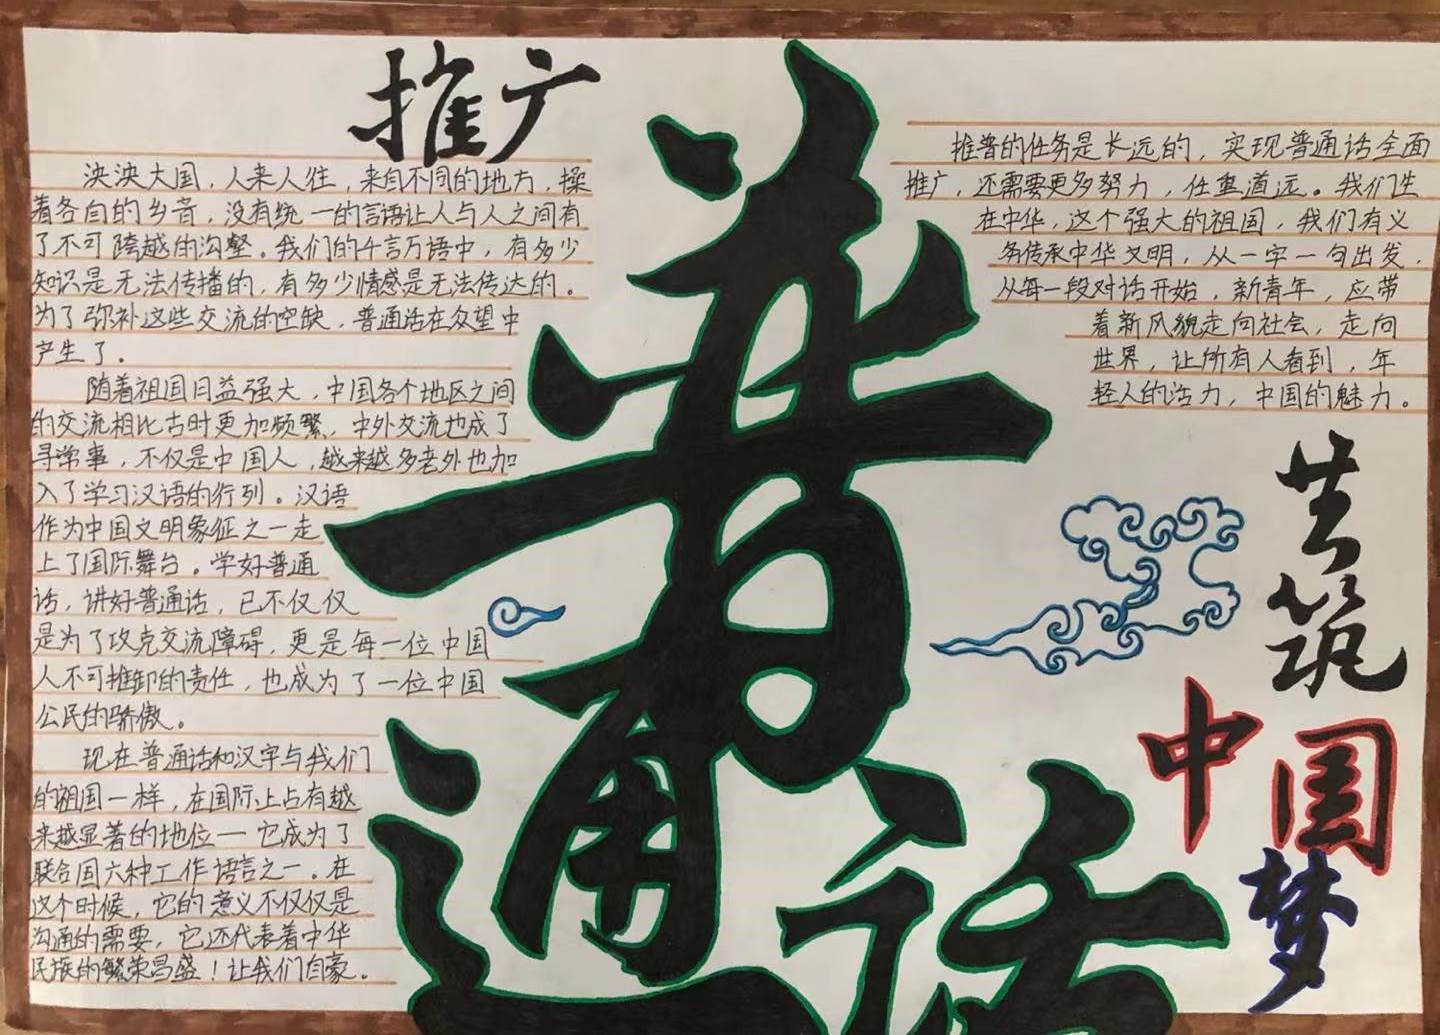 推广
普通话
泱泱大国，人来人往，来自不同的地方，操
着各自的乡音，没有统一的言语让人与人之间有
了不可跨越的沟壑。我们的千言万语中，有多少
知识是无法传播的，有多少情感是无法传达的。
为了弥补这些交流的空缺，普通话在众望中
产生了。
随着祖国日益强大，中国各个地区之间
的交流相比古时更加频繁，中外交流也成了
寻常事，不仅是中国人，越来越多老外也加
入了学习汉语的行列。汉语
作为中国文明象征之一走
上了国际舞台。学好普通
话，讲好普通话，已不仅仅
是为了攻克交流障碍，更是每一位中国
人不可推卸的责任，也成为了一位中国
公民的骄傲。
现在普通话和汉字与我们
的祖国一样，在国际上占有越
来越显著的地位一它成为了
联合国六种工作语言之一。在
这个时候，它的意义不仅仅是
沟通的需要，它还代表着中华
民族的繁荣昌盛！让我们自豪。
推普的任务是长远的，实现普通话全面
推广，还需要更多努力，任重道远。我们生
在中华，这个强大的祖国，我们有义
务传承中华文明，从一字一句出发，
从每一段对话开始，新青年，应带
着新风貌走向社会，走向
世界，让所有人看到，年
轻人的活力，中国的魅力。
共筑
中国
梦